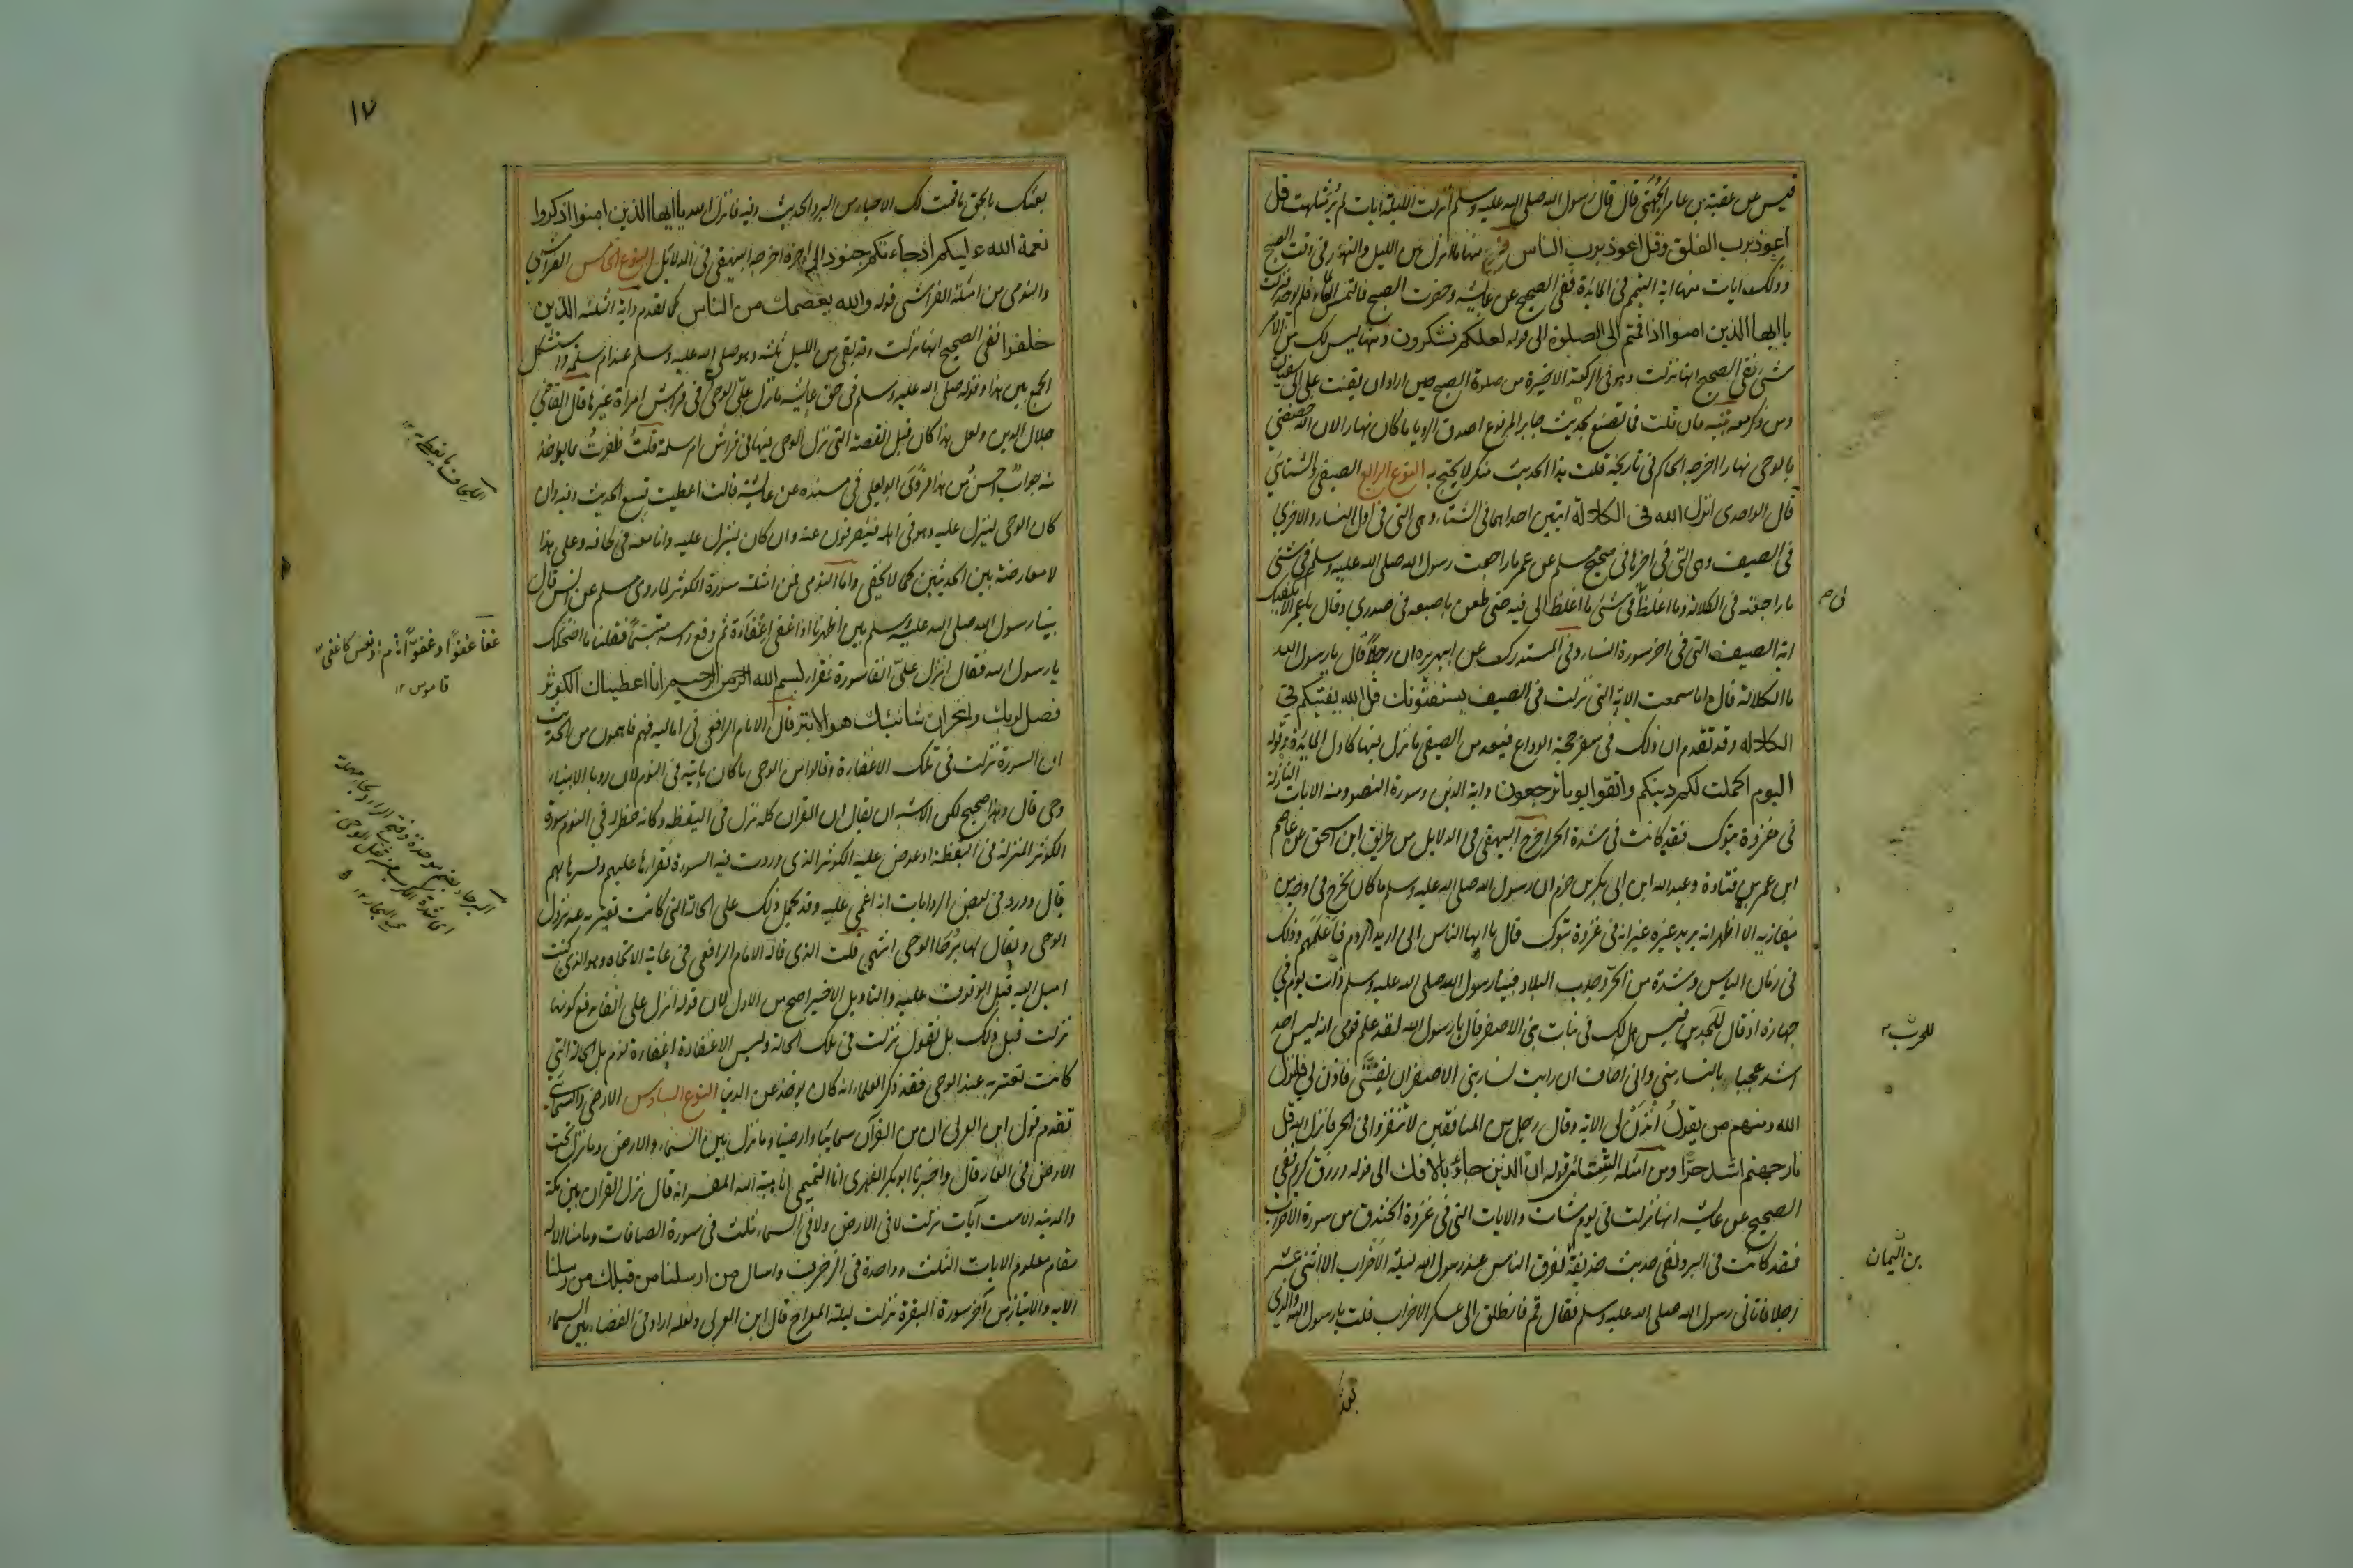 قيس عن عقبة بن عامر الجهنى قال قال رسول الله صلى الله عليه وسلم انزلت الليلة ايات لم ير مثلهن قل
اعوذ برب الفلق وقل اعوذ برب الناس فرع منها ما نزل بين الليل والنهار فى وقت الصبح
وذلك ايات منها اية التيمم فى المايدة ففى الصحيح عن عايشة وحضرت الصبح فالتمس الماء فلم يوجد فنزلت
يا ايها الذين امنوا اذا قمتم الى الصلوة الى قوله لعلكم تشكرون ومنها ليس لك من الامر
شئ ففى الصحيح انها نزلت وهو فى الركعة الاخيرة من صلوة الصبح حين اراد ان يقنت على ابى سفيان
ومن ذكر معه تنبيه فان قلت فما تصنع بحديث جابر المرفوع اصدق الرويا ما كان نهارا لان الله خصنى
بالوحى نهارا اخرجه الحاكم فى تاريخه قلت هذا الحديث منكر لا يحتج به النوع الرابع الصيفى والشتائى
قال الواحدى انزل الله فى الكلالة ايتين احداهما فى الشتاء وهى التى فى اول النساء والاخرى
فى الصيف وهى التى فى اخرها فى صحيح مسلم عن عمر ما راجعت رسول الله صلى الله عليه وسلم فى شئ
ما راجعته فى الكلالة وما اغلظ فى شئ ما اغلظ لى فيه حتى طعن باصبعه فى صدرى وقال يا عمر الا تكفيك
اية الصيف التى فى اخر سورة النساء وفى المستدرك عن ابى هريره ان رجلا قال يا رسول الله
ما الكلالة قال اما سمعت الاية التى نزلت فى الصيف يستفتونك قل الله يفتيكم فى
الكلاله وقد تقدم ان ذلك فى سفر حجة الوداع فيعد من الصيفى ما نزل فيها كاول المايدة وقوله
اليوم اكملت لكم دينكم واتقوا يوما ترجعون واية الدين وسورة النصر ومنه الايات النازلة
فى غزوة تبوك فقد كانت فى شدة الحر اخرج البيهقى فى الدلايل من طريق ابن اسحق عن عاصم
ابن عمر بن قتادة وعبد الله ابن ابى بكر بن حزم ان رسول الله صلى الله عليه وسلم ما كان يخرج فى وجه من
مغازيه الا اظهر انه يريد غيره غير انه فى غزوة تبوك قال يا ايها الناس انى اريد الروم فاعلمهم وذلك
فى زمان الباس وشدة من الحر وجدب البلاد فبينا رسول الله صلى الله عليه وسلم ذات يوم فى
جهازه اذ قال للجد بن قيس هل لك فى بنات بنى الاصفر قال يا رسول الله لقد علم قومى انه ليس احد
اشد عجبا بالنساء منى وانى اخاف ان رايت نساء بنى الاصفر ان يفتننى فاذن لى فانزل
الله ومنهم من يقول ائذن لى الاية وقال رجل من المنافقين لا تنفروا فى الحر فانزل الله قل
نار جهنم اشد حرا ومن امثلة الشتائى قوله ان الذين جاؤ بالافك الى قوله ورزق كريم ففى
الصحيح عن عايشه انها نزلت فى يوم شات والايات التى فى غزوة الخندق من سورة الاحزاب
فقد كانت فى البرد ففى حديث حذيفة تفرق الناس عن رسول الله ليلة الاحزاب الا اثنى عشر
رجلا فاتانى رسول الله صلى الله عليه وسلم فقال قم فانطلق الى عسكر الاحزاب قلت يا رسول الله والذى
لى ص
للحرب
بن اليمان
بعثك
١٧
بعثك بالحق ما قمت لك الا حياء من البرد الحديث وفيه فانزل الله يا ايها الذين امنوا اذكروا
نعمة الله عليكم اذ جاءتكم جنود الى اخره اخرجه البيهقى فى الدلائل النوع الخامس الفراشى
والنومى من امثلة الفراشى قوله والله يعصمك من الناس كما تقدم واية الثلثة الذين
خلفوا ففى الصحيح انها نزلت وقد بقى من الليل ثلثه وهو صلى الله عليه وسلم عند ام سلمه واستشكل
الجمع بين هذا وقوله صلى الله عليه وسلم فى حق عايشه ما نزل على الوحى فى فراش امراة غيرها قال القاضى
جلال الدين ولعل هذا كان قبل القصة التى نزل الوحى فيها فى فراش ام سلمة قلت ظفرت بما يوخذ
منه جواب احسن من هذا فروى ابو يعلى فى مسنده عن عايشة قالت اعطيت تسع الحديث وفيه وان
كان الوحى لينزل عليه وهو فى اهله فينصرفون عنه وان كان لينزل عليه وانا معه فى لحافه وعلى هذا
لا معارضة بين الحديثين كما لا يخفى واما النومى فمن امثلته سورة الكوثر لما روى مسلم عن انس قال
بينا رسول الله صلى الله عليه وسلم بين اظهرنا اذ اغفى اغفاءة ثم رفع راسه متبسما فقلنا ما اضحكك
يا رسول الله فقال انزل على انفا سورة فقرا بسم الله الرحمن الرحيم انا اعطيناك الكوثر
فصل لربك وانحر ان شانئك هو الابتر قال الامام الرافعى فى اماليه فهم فاهمون من الحديث
ان السورة نزلت فى تلك الاغفاءة وقالوا من الوحى ما كان ياتيه فى النوم لان رويا الانبياء
وحى قال وهذا صحيح لكن الاشبه ان يقال ان القران كله نزل فى اليقظه وكانه خطر له فى النوم سورة
الكوثر المنزلة فى اليقظة او عرض عليه الكوثر الذى وردت فيه السورة فقراها عليهم وفسرها لهم
قال وورد فى بعض الروايات انه اغمى عليه وقد يحمل ذلك على الحالة التى كانت تعتريه عند نزول
الوحى ويقال لها برحاء الوحى انتهى قلت الذى قاله الامام الرافعى فى غاية الاتجاه وهو الذى كنت
اميل اليه قبل الوقوف عليه والتاويل الاخير اصح من الاول لان قوله انزل على انفا يدفع كونها
نزلت قبل ذلك بل نقول نزلت فى تلك الحالة وليس الاغفاءة اغفاءة نوم بل الحالة التى
كانت تعتريه عند الوحى فقد ذكر العلماء انه كان يوخذ عن الدنيا النوع السادس الارضى والسمائى
تقدم قول ابن العربى ان من القرآن سمائيا وارضيا وما نزل بين السماء والارض وما نزل تحت
الارض فى الغار قال واخبرنا ابو بكر الفهرى انا التميمى انا هبة الله المفسر انه قال نزل القران بين مكة
والمدينه الا ست آيات نزلت لا فى الارض ولا فى السماء ثلث فى سورة الصافات وما منا الا له
مقام معلوم الايات الثلث وواحدة فى الزخرف واسال من ارسلنا من قبلك من رسلنا
الايه والايتان من آخر سورة البقرة نزلت ليلة المعراج قال ابن العربى ولعله اراد فى الفضاء بين السماء
غفا غفوا وغفوا نام او نعس كاغفى
قاموس ١٢